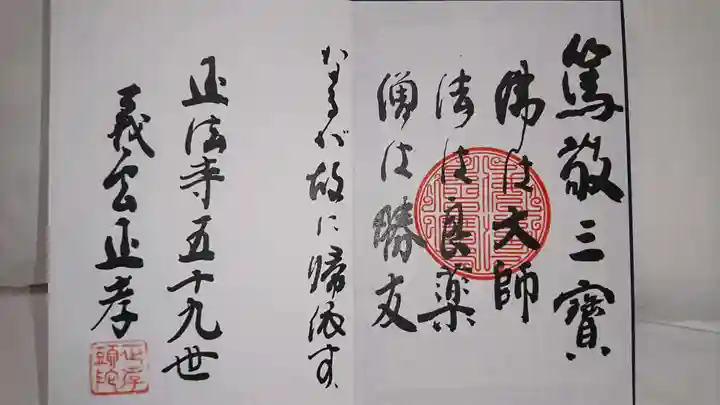 篤敬三寶
佛は大師
法は良薬
僧は勝友
なるが故に帰依す
正法寺五十九世
義雲正孝